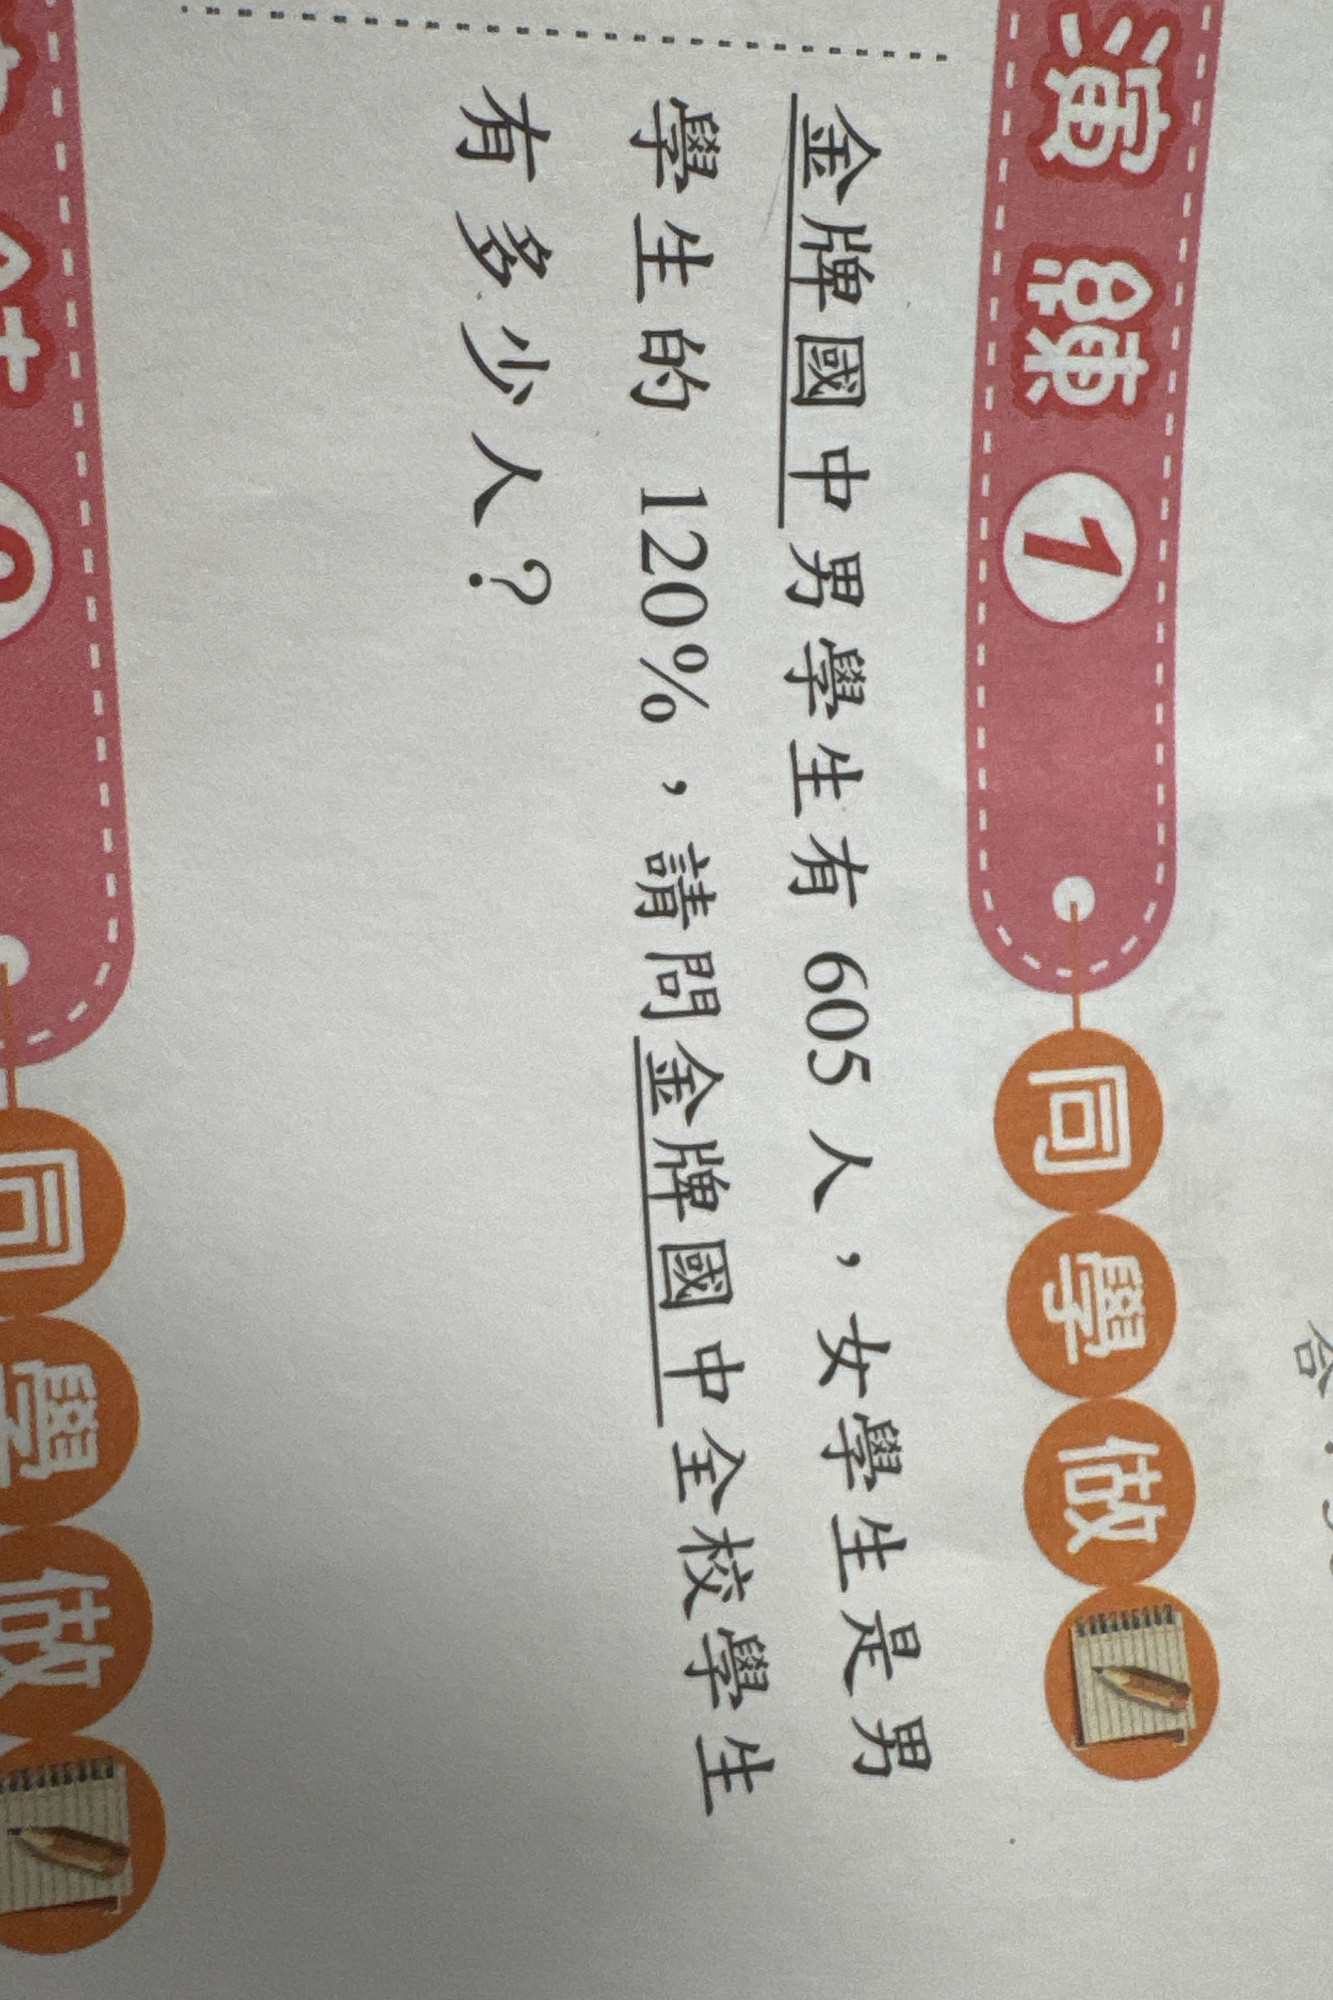 演練 1 同學做
金牌國中男學生有 605 人，女學生是男
學生的 120%，請問金牌國中全校學生
有多少人？
同學做